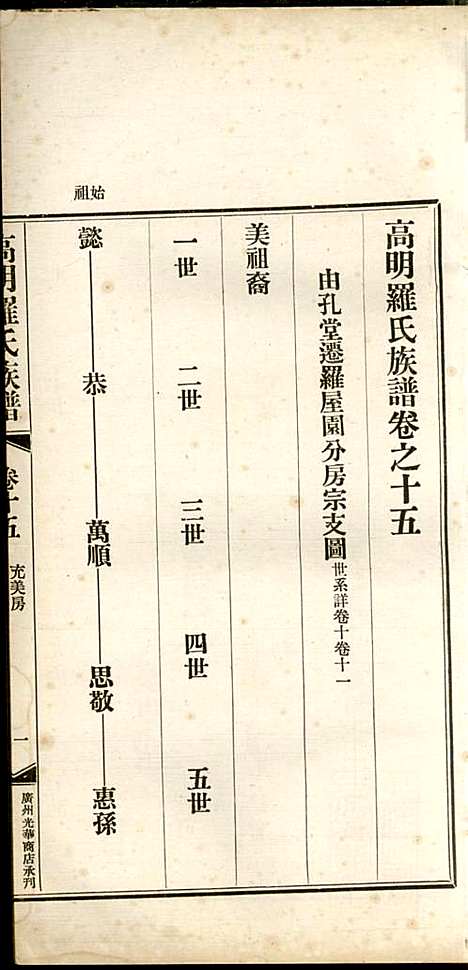 高明羅氏族譜卷之十五
由孔堂遷羅屋園分房宗支圖世系詳卷十卷十一
美祖裔
一世 二世 三世 四世 五世
始祖
懿 恭 萬順 思敬 惠孫
高明羅氏族譜 卷十五 充美房 一 廣州光華商店承刊